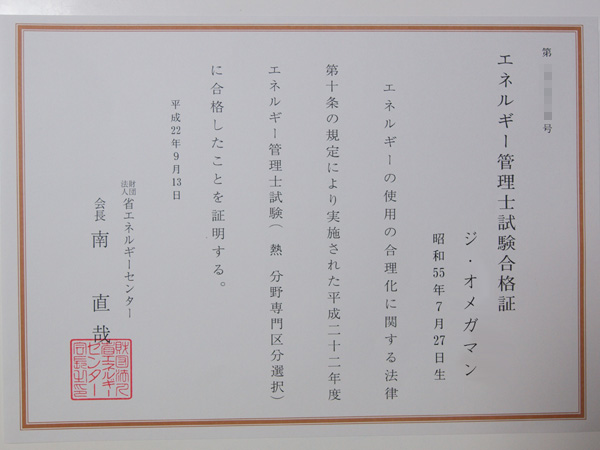 第 号
エネルギー管理士試験合格証
ジ・オメガマン
昭和55年7月27日生
エネルギーの使用の合理化に関する法律
第十条の規定により実施された平成二十二年度
エネルギー管理士試験(熱 分野専門区分選択)
に合格したことを証明する。
平成22年9月13日
財団法人 省エネルギーセンター
会長 南 直哉
財団法人
省エネルギー
センター
会長之印